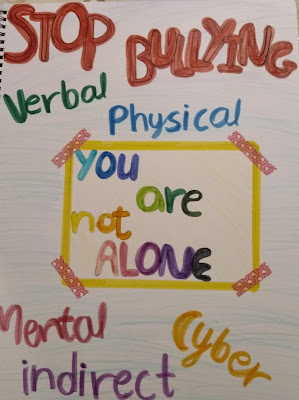 STOP BULLYING
Verbal
Physical
You
are
not
ALONE
Mental
Cyber
indirect